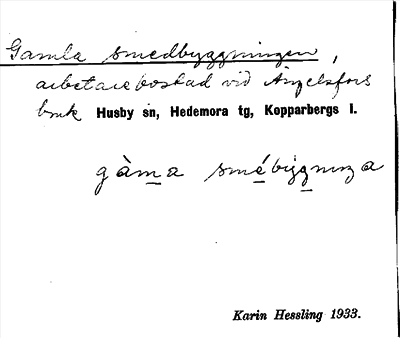 Gamla smedbyggningen,
arbetarebostad vid Ängelsfors
bruk Husby sn, Hedemora tg, Kopparbergs l.
gàma smébyggniŋa
Karin Hessling 1933.